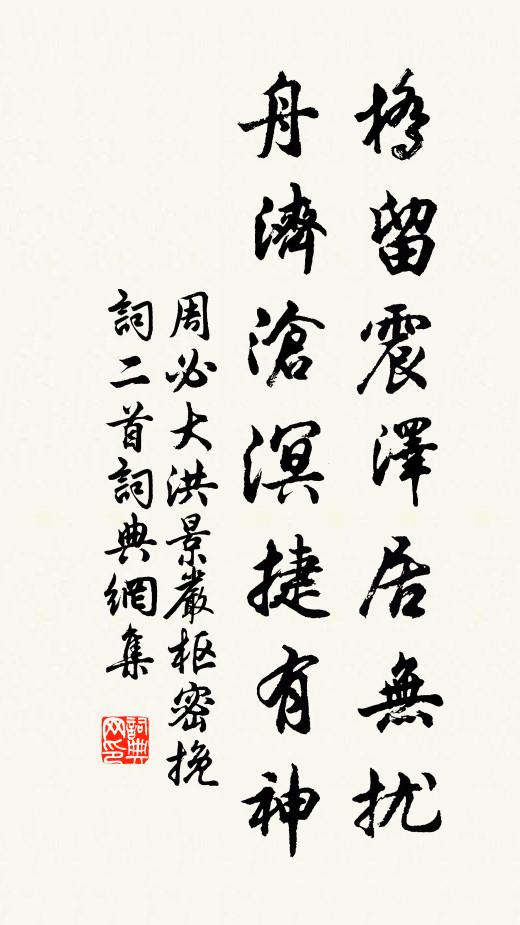 橋留震澤居無擾
舟濟滄溟捷有神
周必大洪景嚴枢密挽
詞二首詞典網集
詞典网印